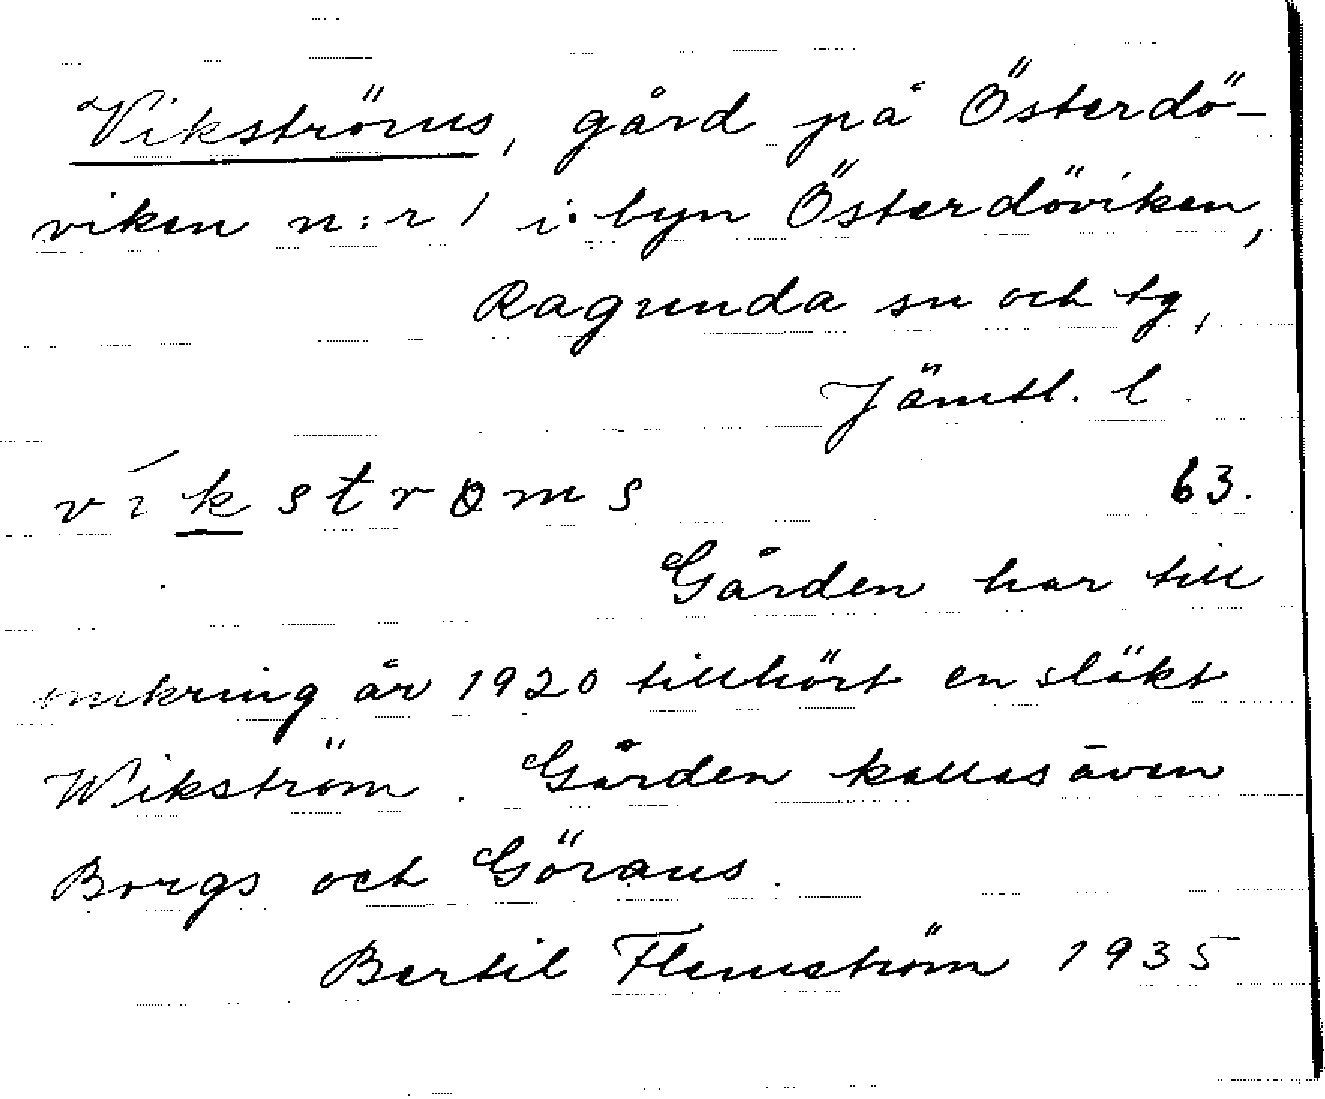 Vikströms, gård på Österdö-
viken n:r 1 i byn Österdöviken,
Ragunda sn och tg,
Jämtl. l.
víkstroms 63.
Gården har till
omkring år 1920 tillhört en släkt
Wikström. Gården kallas även
Borgs och Görans.
Bertil Flemström 1935